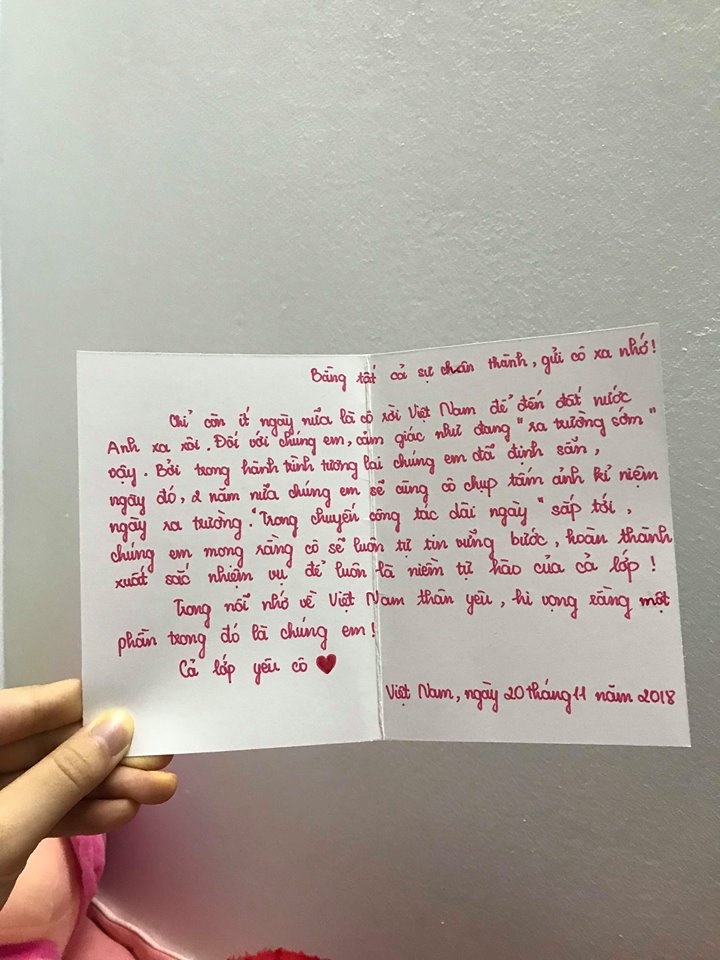 Bằng tất cả sự chân thành, gửi cô xa nhớ!
Chỉ còn ít ngày nữa là cô rời Việt Nam để đến đất nước
Anh xa xôi. Đối với chúng em, cảm giác như đang "ra trường sớm"
vậy. Bởi trong hành trình tương lai chúng em đã định sẵn,
ngày đó, 2 năm nữa chúng em sẽ cùng cô chụp tấm ảnh kỉ niệm
ngày ra trường. Trong chuyến "công tác dài ngày" sắp tới,
chúng em mong rằng cô sẽ luôn tự tin vững bước, hoàn thành
xuất sắc nhiệm vụ để luôn là niềm tự hào của cả lớp!
Trong nỗi nhớ về Việt Nam thân yêu, hi vọng rằng một
phần trong đó là chúng em!
Cả lớp yêu cô ♥
Việt Nam, ngày 20 tháng 11 năm 2018